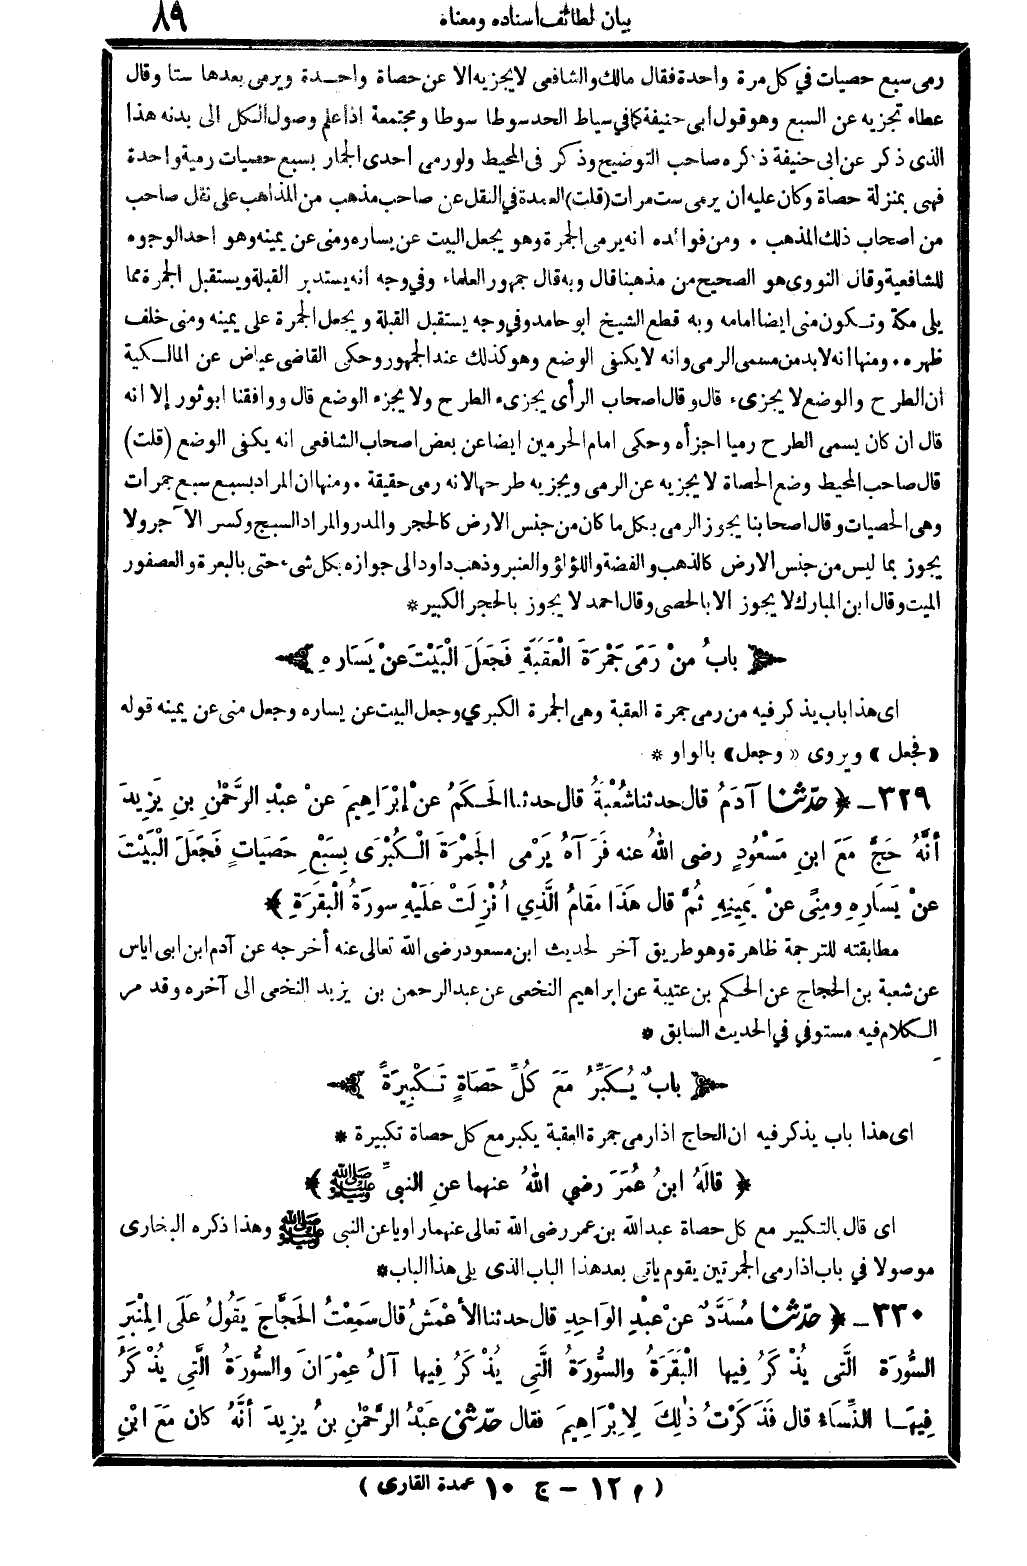 بيان لطائف اسناده ومعناه ٨٩
رمى سبع حصيات في كل مرة واحدة فقال مالك والشافعى لا يجزيه الا عن حصاة واحدة ويرمى بعدها ستا وقال
عطاء تجزيه عن السبع وهو قول أبى حنيفة كما في سياط الحد سوطا سوطا ومجتمعة اذا علم وصول الكل الى بدنه هذا
الذى ذكر عن ابى حنيفة ذكره صاحب التوضيح وذكر فى المحيط ولو رمى احدى الجمار بسبع حصيات رمية واحدة
فهى بمنزلة حصاة وكان عليه ان يرمى ست مرات (قلت) العمدة في النقل عن صاحب مذهب من المذاهب على نقل صاحب
من اصحاب ذلك المذهب ٠ ومن فوائده انه يرمى الجمرة وهو يجعل البيت عن يساره ومنى عن يمينه وهو احد الوجوه
للشافعية وقال النووى هو الصحيح من مذهبنا قال وبه قال جمهور العلماء وفي وجه انه يستدبر القبلة ويستقبل الجمرة مما
يلى مكة وتكون منى ايضا امامه وبه قطع الشيخ ابو حامد وفي وجه يستقبل القبلة ويجعل الجمرة على يمينه ومنى خلف
ظهره ٠ ومنها انه لابد من مسمى الرمى وانه لا يكفى الوضع وهو كذلك عند الجمهور وحكى القاضى عياض عن المالكية
ان الطرح والوضع لا يجزىء قال وقال اصحاب الرأى يجزىء الطرح ولا يجزء الوضع قال ووافقنا ابو ثور إلا انه
قال ان كان يسمى الطرح رميا اجزأه وحكى امام الحرمين ايضا عن بعض اصحاب الشافعى انه يكفى الوضع (قلت)
قال صاحب المحيط وضع الحصاة لا يجزيه عن الرمى ويجزيه طرحها لانه رمى حقيقة ٠ ومنها ان المراد بسبع سبع جمرات
وهى الحصيات وقال اصحابنا يجوز الرمى بكل ما كان من جنس الارض كالحجر والمدر والمراد السبج وكسر الآجر ولا
يجوز بما ليس من جنس الارض كالذهب والفضة واللؤلؤ والعنبر وذهب داود الى جوازه بكل شىء حتى بالبعرة والعصفور
الميت وقال ابن المبارك لا يجوز الا بالحصى وقال احمد لا يجوز بالحجر الكبير *
﴿ بابُ منْ رَمَى جَمْرَةَ الْعَقَبَةِ فَجَعَلَ الْبَيْتَ عنْ يَسَارِهِ ﴾
اى هذا باب يذكر فيه من رمى جمرة العقبة وهى الجمرة الكبري وجعل البيت عن يساره وجعل منى عن يمينه قوله
«فجعل» ويروى «وجعل» بالواو *
٣٢٩ ـ ﴿ حدّثنا آدَمُ قال حدثنا شُعْبَةُ قال حدثنا الحَكَمُ عنْ إبْرَاهِيمَ عنْ عبْدِ الرَّحْمٰنِ بنِ يَزِيدَ
أنَّهُ حَجَّ مَعَ ابنِ مَسْعُودٍ رضى اللهُ عنه فَرَآهُ يَرْمى الجَمْرَةَ الْكُبْرَى بِسَبْعِ حَصَيَاتٍ فَجَعَلَ الْبَيْتَ
عنْ يَسَارِهِ ومِنًى عنْ يَمِينِهِ ثُمَّ قال هَذَا مَقَامُ الَّذِي أُنْزِلَتْ عَلَيْهِ سورَةُ الْبقَرَةِ ﴾
مطابقته للترجمة ظاهرة وهو طريق آخر لحديث ابن مسعود رضى الله تعالى عنه أخرجه عن آدم ابن ابى اياس
عن شعبة بن الحجاج عن الحكم بن عتيبة عن ابراهيم النخعى عن عبد الرحمن بن يزيد النخعى الى آخره وقد مر
الكلام فيه مستوفي في الحديث السابق *
﴿ بابٌ يُكَبِّرُ مَعَ كُلِّ حَصَاةٍ تَكْبِيرَةً ﴾
اى هذا باب يذكر فيه ان الحاج اذا رمى جمرة العقبة يكبر مع كل حصاة تكبيرة *
﴿ قالَهُ ابنُ عُمَرَ رضي اللهُ عنهما عنِ النبىِّ ﷺ ﴾
اى قال بالتكبير مع كل حصاة عبد الله بن عمر رضى الله تعالى عنهما راويا عن النبى ﷺ وهذا ذكره البخارى
موصولا في باب اذا رمى الجمرتين يقوم ياتى بعد هذا الباب الذى يلى هذا الباب *
٣٣٠ ـ ﴿ حدّثنا مُسَدَّدٌ عنْ عبْدِ الوَاحِدِ قال حدثنا الأعْمَشُ قال سَمِعْتُ الحَجَّاجَ يَقُولُ عَلَى المِنْبَرِ
السُّورَةُ الَّتى يُذْكَرُ فِيها الْبَقَرَةُ والسُّورَةُ الَّتِي يُذْكَرُ فِيها آلُ عِمْرَانَ والسُّورَةُ الَّتِي يُذْكَرُ
فِيهَا النِّسَاءُ قال فَذَكَرْتُ ذٰلِكَ لِإِبْرَاهِيمَ فقال حدّثنى عَبْدُ الرَّحْمٰنِ بنُ يَزِيدَ أنَّهُ كان مَعَ ابْنِ
(م ١٢ ـ ج ١٠ عمدة القارى)